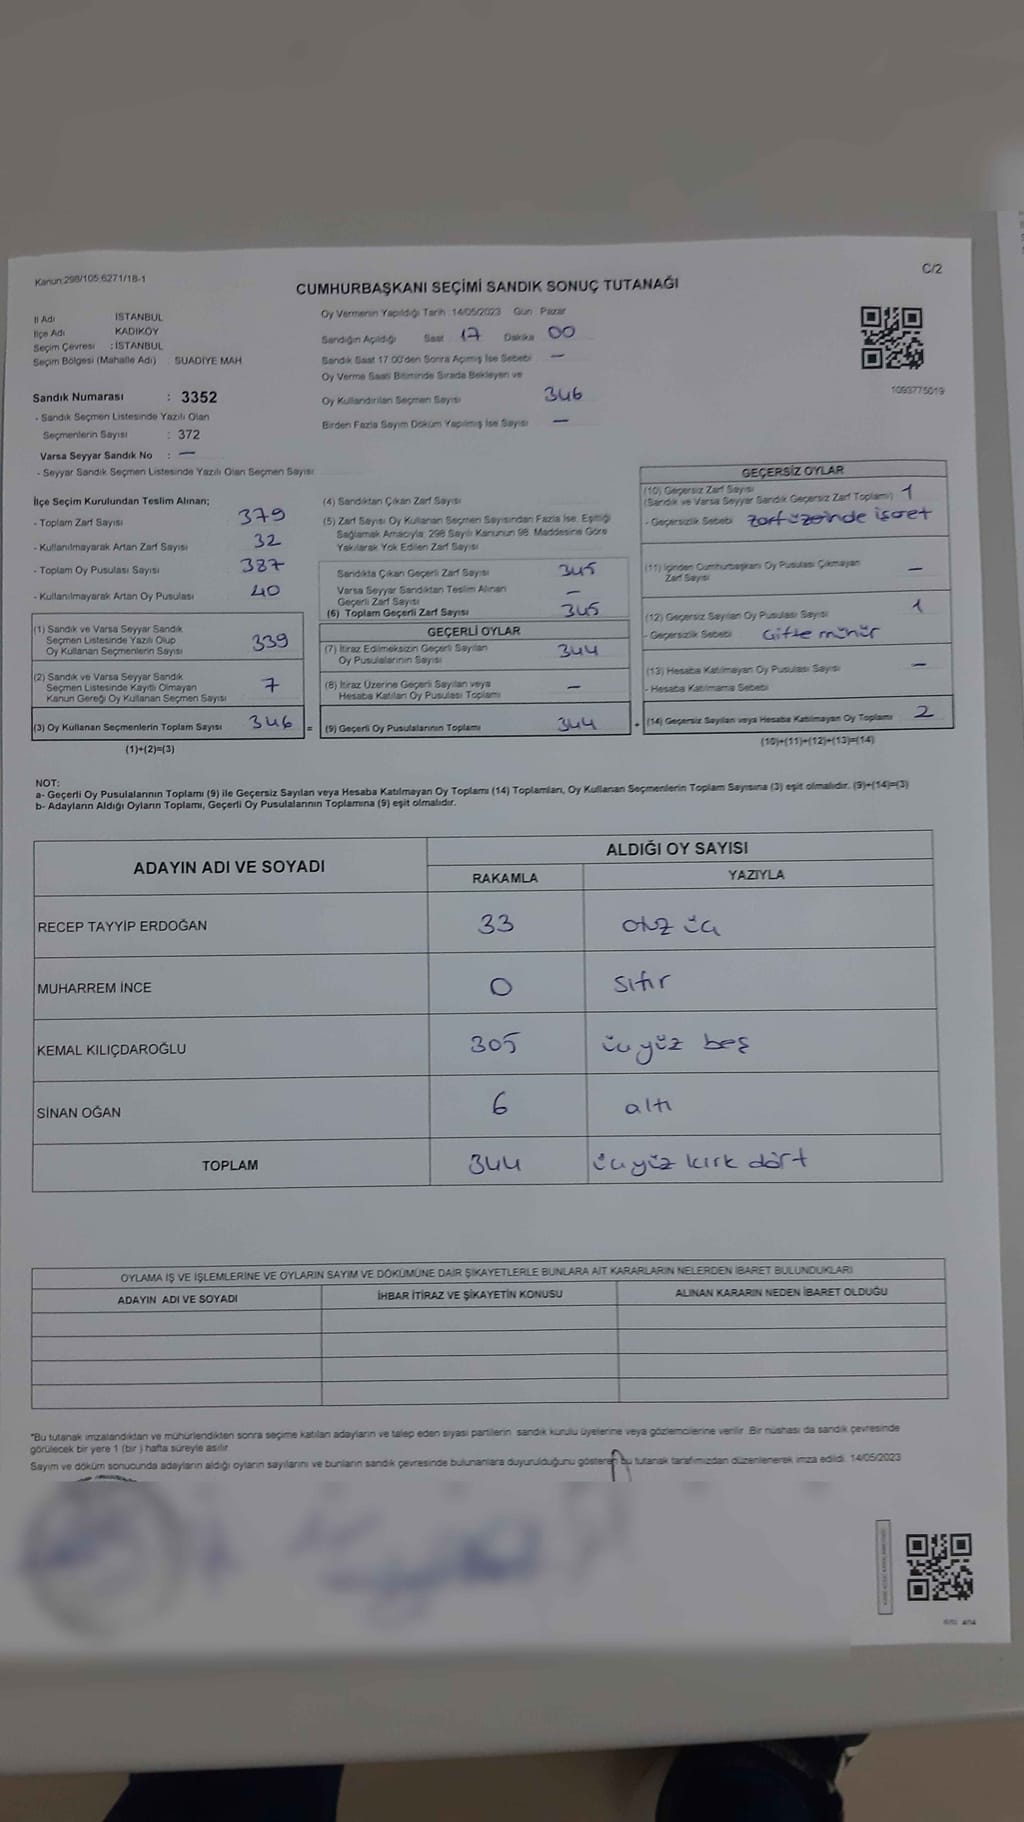 Kanun:298/105;6271/18-1
C/2
CUMHURBAŞKANI SEÇİMİ SANDIK SONUÇ TUTANAĞI
İl Adı İSTANBUL
İlçe Adı KADIKÖY
Seçim Çevresi : İSTANBUL
Seçim Bölgesi (Mahalle Adı) : SUADİYE MAH
Sandık Numarası : 3352
- Sandık Seçmen Listesinde Yazılı Olan
Seçmenlerin Sayısı : 372
Varsa Seyyar Sandık No : —
- Seyyar Sandık Seçmen Listesinde Yazılı Olan Seçmen Sayısı
Oy Vermenin Yapıldığı Tarih :14/05/2023 Gün Pazar
Sandığın Açıldığı Saat 17 Dakika 00
Sandık Saat 17:00'den Sonra Açımış İse Sebebi —
Oy Verme Saati Bitiminde Sırada Bekleyen ve
Oy Kullandırılan Seçmen Sayısı 346
Birden Fazla Sayım Döküm Yapılmış İse Sayısı —
1093775019
İlçe Seçim Kurulundan Teslim Alınan;
- Toplam Zarf Sayısı 379
- Kullanılmayarak Artan Zarf Sayısı 32
- Toplam Oy Pusulası Sayısı 387
- Kullanılmayarak Artan Oy Pusulası 40
(1) Sandık ve Varsa Seyyar Sandık
Seçmen Listesinde Yazılı Olup
Oy Kullanan Seçmenlerin Sayısı 339
(2) Sandık ve Varsa Seyyar Sandık
Seçmen Listesinde Kayıtlı Olmayan
Kanun Gereği Oy Kullanan Seçmen Sayısı 7
(3) Oy Kullanan Seçmenlerin Toplam Sayısı 346 =
(1)+(2)=(3)
(4) Sandıktan Çıkan Zarf Sayısı
(5) Zarf Sayısı Oy Kullanan Seçmen Sayısından Fazla İse, Eşitliği
Sağlamak Amacıyla, 298 Sayılı Kanunun 98. Maddesine Göre
Yakılarak Yok Edilen Zarf Sayısı
Sandıkta Çıkan Geçerli Zarf Sayısı 345
Varsa Seyyar Sandıktan Teslim Alınan
Geçerli Zarf Sayısı —
(6) Toplam Geçerli Zarf Sayısı 345
GEÇERLİ OYLAR
(7) İtiraz Edilmeksizin Geçerli Sayılan
Oy Pusulalarının Sayısı 344
(8) İtiraz Üzerine Geçerli Sayılan veya
Hesaba Katılan Oy Pusulası Toplamı —
(9) Geçerli Oy Pusulalarının Toplamı 344 +
GEÇERSİZ OYLAR
(10) Geçersiz Zarf Sayısı
(Sandık ve Varsa Seyyar Sandık Geçersiz Zarf Toplamı) 1
- Geçersizlik Sebebi zarf üzerinde işaret
(11) İçinden Cumhurbaşkanı Oy Pusulası Çıkmayan
Zarf Sayısı —
(12) Geçersiz Sayılan Oy Pusulası Sayısı 1
- Geçersizlik Sebebi Çifte mühür
(13) Hesaba Katılmayan Oy Pusulası Sayısı —
- Hesaba Katılmama Sebebi
(14) Geçersiz Sayılan veya Hesaba Katılmayan Oy Toplamı 2
(10)+(11)+(12)+(13)=(14)
NOT:
a- Geçerli Oy Pusulalarının Toplamı (9) ile Geçersiz Sayılan veya Hesaba Katılmayan Oy Toplamı (14) Toplamları, Oy Kullanan Seçmenlerin Toplam Sayısına (3) eşit olmalıdır. (9)+(14)=(3)
b- Adayların Aldığı Oyların Toplamı, Geçerli Oy Pusulalarının Toplamına (9) eşit olmalıdır.
ADAYIN ADI VE SOYADI ALDIĞI OY SAYISI
RAKAMLA YAZIYLA
RECEP TAYYİP ERDOĞAN 33 otuz üç
MUHARREM İNCE 0 sıfır
KEMAL KILIÇDAROĞLU 305 üç yüz beş
SİNAN OĞAN 6 altı
TOPLAM 344 üç yüz kırk dört
OYLAMA İŞ VE İŞLEMLERİNE VE OYLARIN SAYIM VE DÖKÜMÜNE DAİR ŞİKAYETLERLE BUNLARA AİT KARARLARIN NELERDEN İBARET BULUNDUKLARI
ADAYIN ADI VE SOYADI İHBAR İTİRAZ VE ŞİKAYETİN KONUSU ALINAN KARARIN NEDEN İBARET OLDUĞU
*Bu tutanak imzalandıktan ve mühürlendikten sonra seçime katılan adayların ve talep eden siyasi partilerin sandık kurulu üyelerine veya gözlemcilerine verilir. Bir nüshası da sandık çevresinde
görülecek bir yere 1 (bir ) hafta süreyle asılır.
Sayım ve döküm sonucunda adayların aldığı oyların sayılarını ve bunların sandık çevresinde bulunanlara duyurulduğunu gösteren bu tutanak tarafımızdan düzenlenerek imza edildi. 14/05/2023